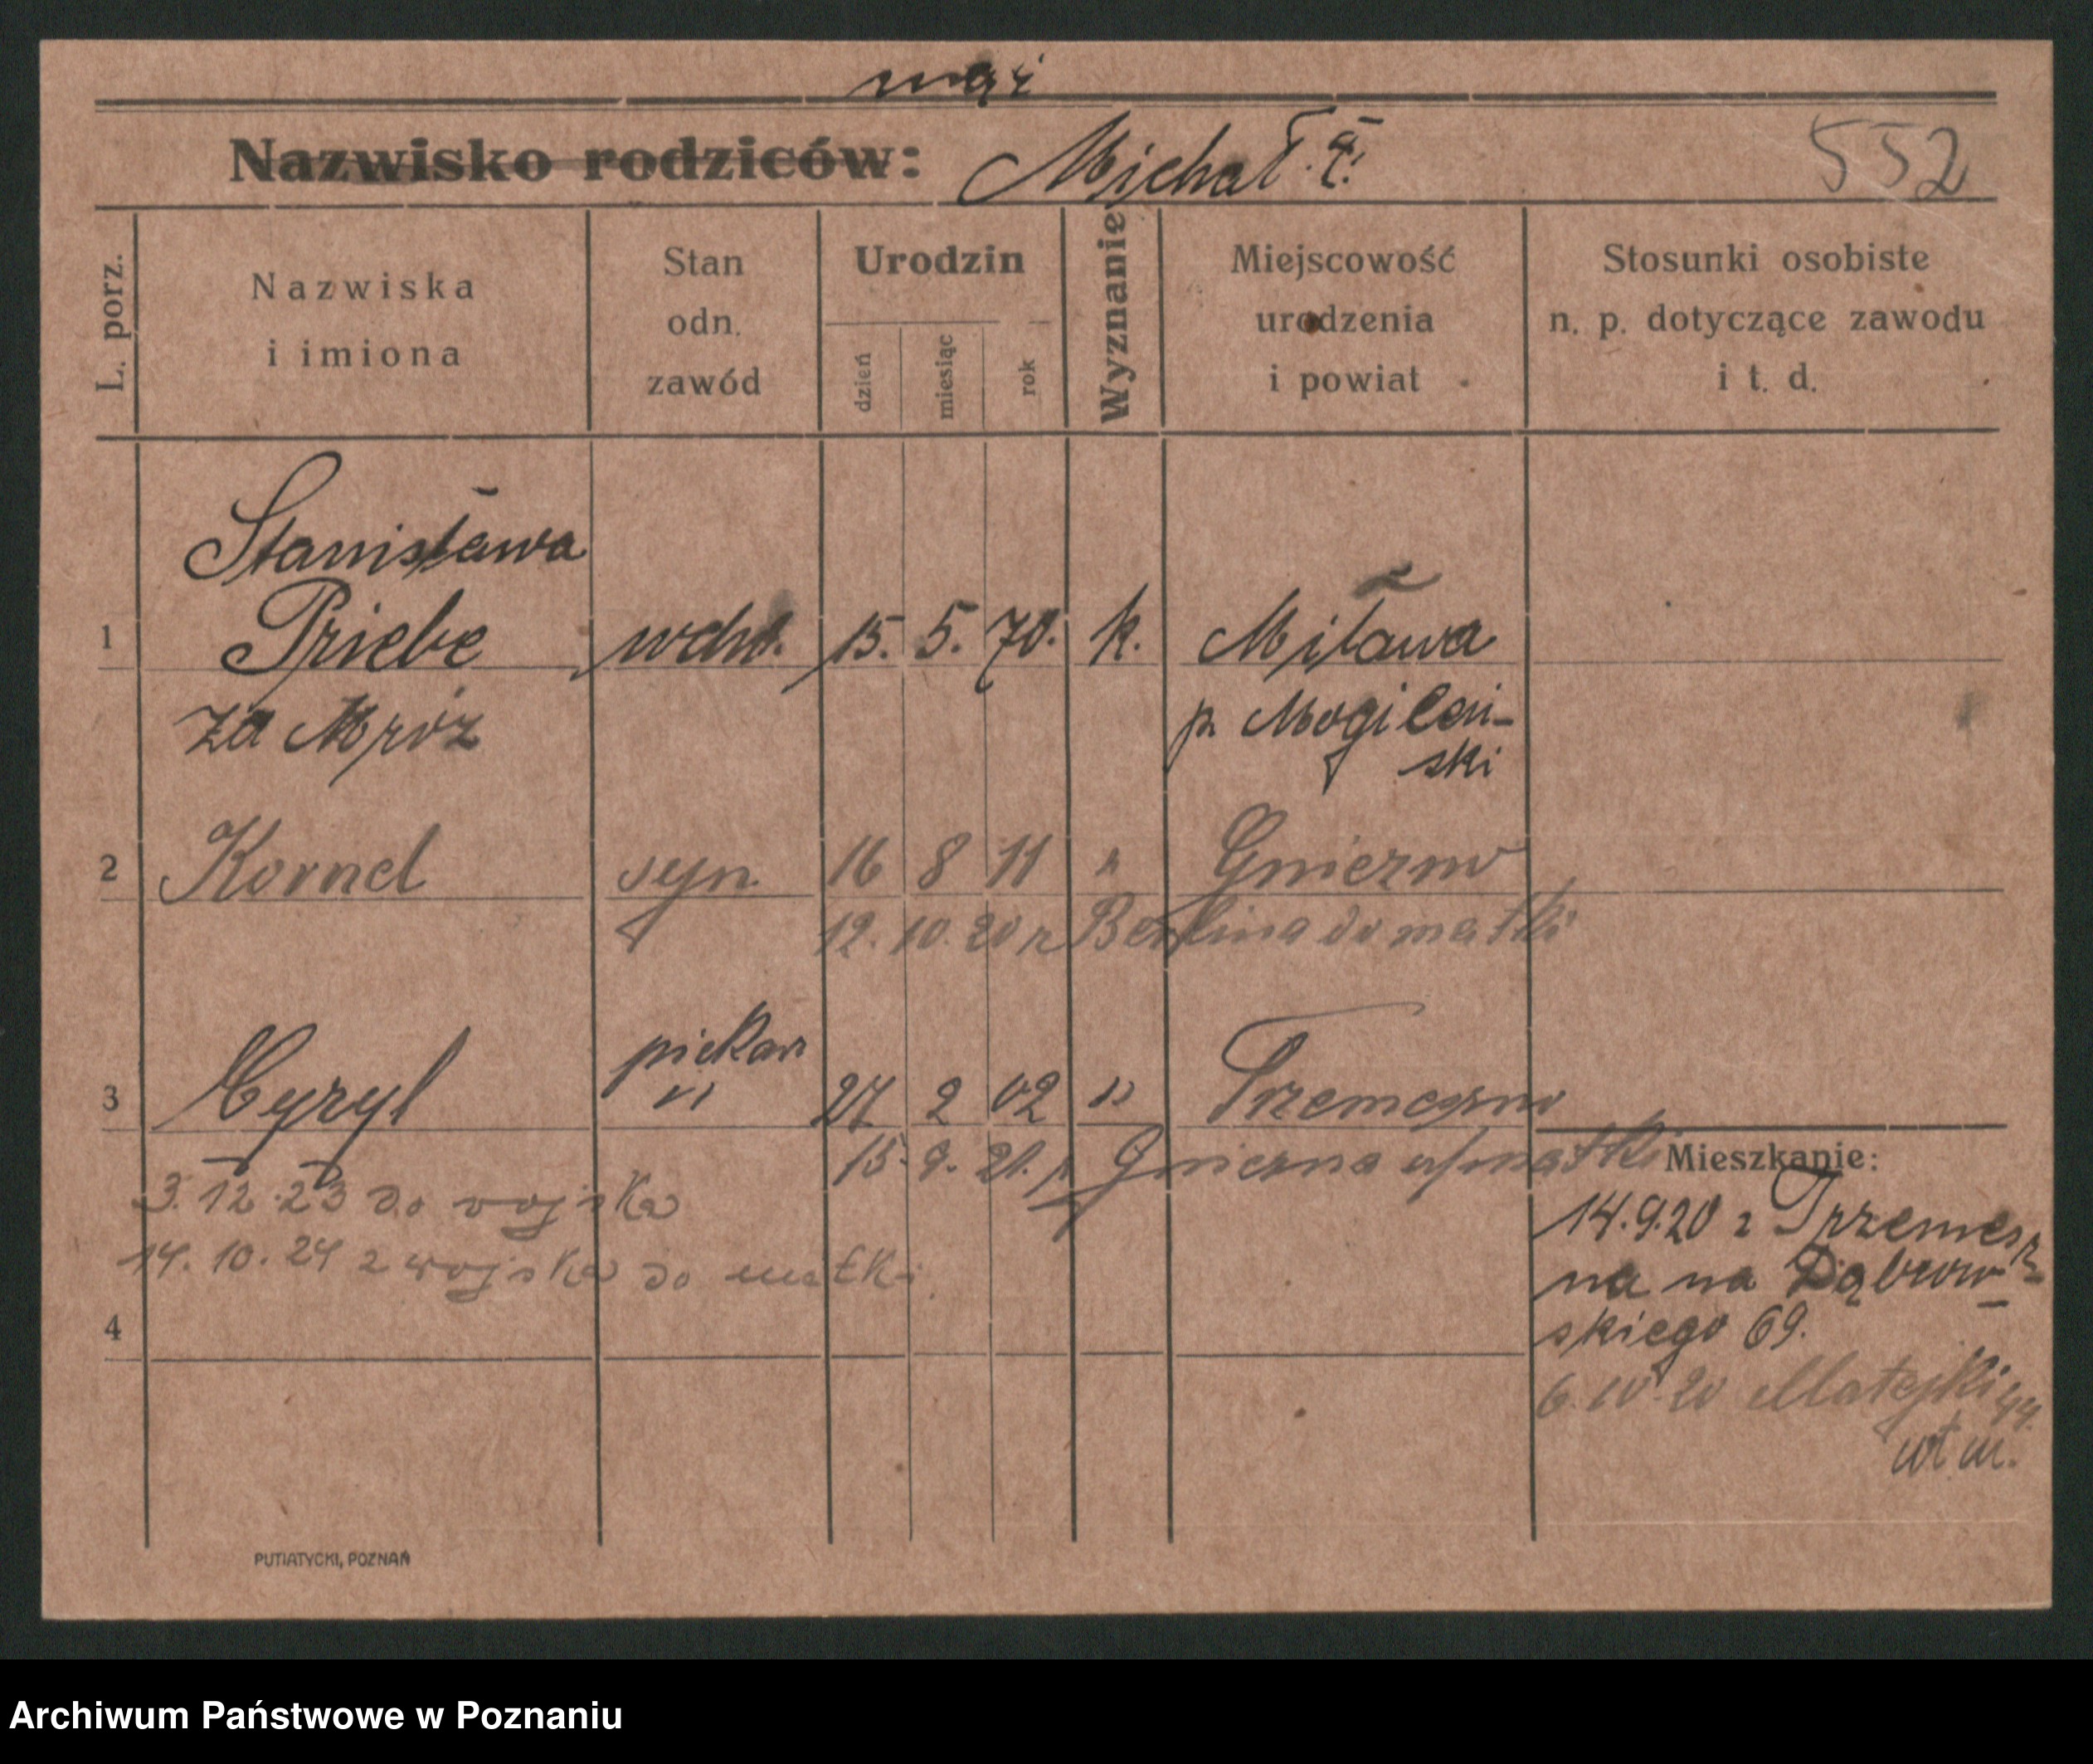 mąż
Nazwisko rodziców: Michał
552
L. porz.
Nazwiska
i imiona
Stan
odn.
zawód
Urodzin
dzień
miesiąc
rok
Wyznanie
Miejscowość
urodzenia
i powiat
Stosunki osobiste
n. p. dotyczące zawodu
i t. d.
Stanisława
1 Priebe wdw. 15. 5. 70. k. Miława
za Mróz p. Mogileń-
ski
2 Kornel syn 16 8 11 " Gniezno
12. 10. 20 z Berlina do matki
piekarz
3 Cyryl " 27 2 02 " Trzemeszno
15. 9. 21. z Gniezna matki
3. 12. 23 do wojska
14. 10. 24 z wojska do matki
4
Mieszkanie:
14.9.20 z Trzemesz-
na na Dąbrow-
skiego 69.
6.10.20 Matejki 44.
wł m.
PUTIATYCKI, POZNAŃ
Archiwum Państwowe w Poznaniu